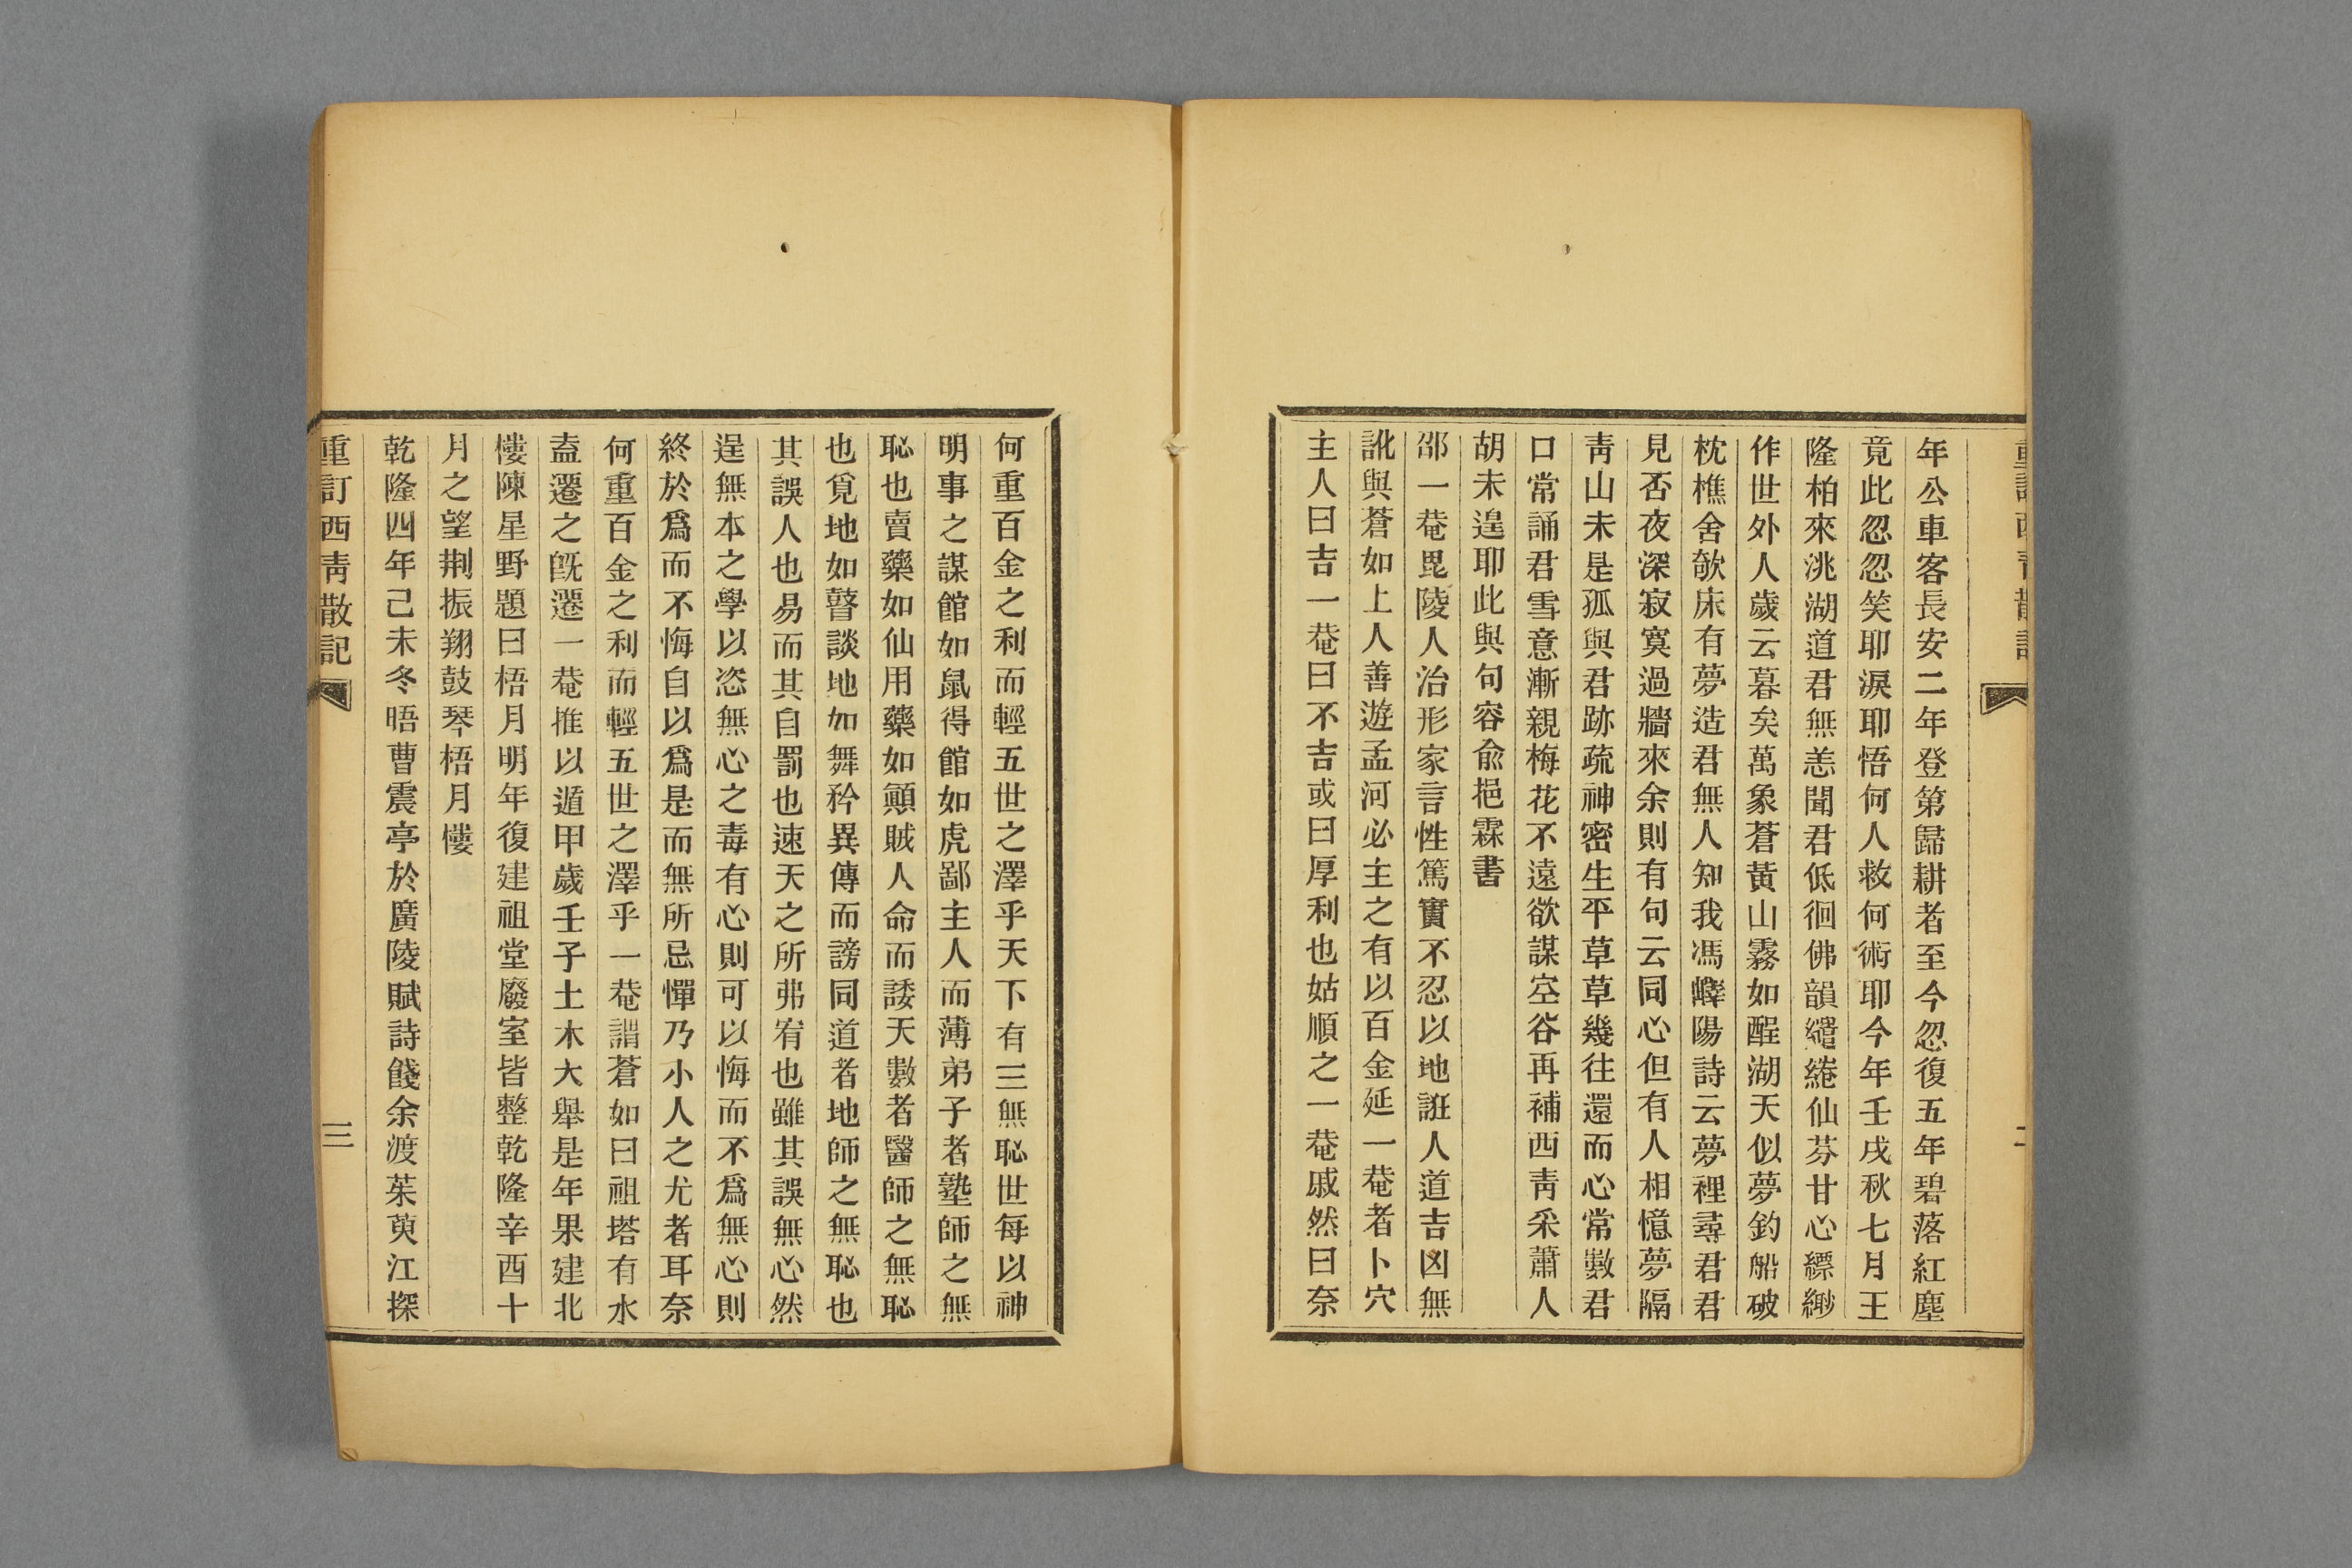 重訂西青散記
二
年公車客長安二年登第歸耕者至今忽復五年碧落紅塵
竟此忽忽笑耶淚耶悟何人救何術耶今年壬戌秋七月王
隆柏來洮湖道君無恙聞君低徊佛韻繾綣仙芬甘心縹緲
作世外人歲云暮矣萬象蒼黃山霧如酲湖天似夢釣船破
枕樵舍欹床有夢造君無人知我馮嶧陽詩云夢裡尋君君
見否夜深寂寞過牆來余則有句云同心但有人相憶夢隔
靑山未是孤與君跡疏神密生平草草幾往還而心常數君
口常誦君雪意漸親梅花不遠欲謀空谷再補西靑采蕭人
胡未遑耶此與句容兪挹霖書
邵一菴毘陵人治形家言性篤實不忍以地誑人道吉凶無
訛與蒼如上人善遊孟河必主之有以百金延一菴者卜穴
主人曰吉一菴曰不吉或曰厚利也姑順之一菴戚然曰奈
何重百金之利而輕五世之澤乎天下有三無恥世每以神
明事之謀館如鼠得館如虎鄙主人而薄弟子者塾師之無
恥也賣藥如仙用藥如顚賊人命而諉天數者醫師之無恥
也覓地如瞽談地如舞矜異傳而謗同道者地師之無恥也
其誤人也易而其自罰也速天之所弗宥也雖其誤無心然
逞無本之學以恣無心之毒有心則可以悔而不爲無心則
終於爲而不悔自以爲是而無所忌憚乃小人之尤者耳奈
何重百金之利而輕五世之澤乎一菴謂蒼如曰祖塔有水
盍遷之旣遷一菴推以遁甲歲壬子土木大舉是年果建北
樓陳星野題曰梧月明年復建祖堂廢室皆整乾隆辛酉十
月之望荆振翔鼓琴梧月樓
乾隆四年己未冬晤曹震亭於廣陵賦詩餞余渡茱萸江探
重訂西靑散記
三